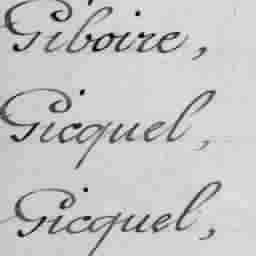 Giboire,
Gicquel,
Gicquel,